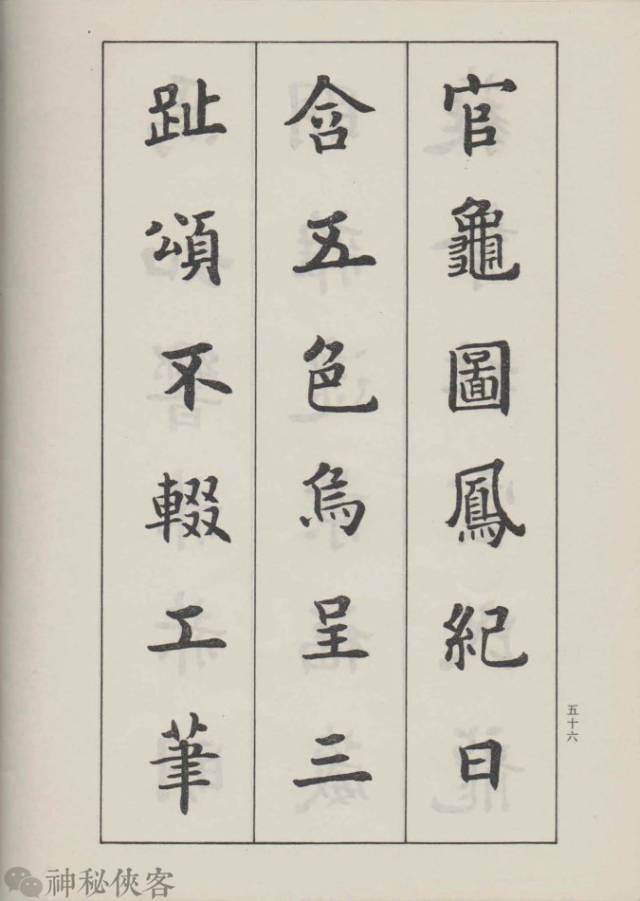 官龜圖鳳紀日
含五色烏呈三
趾頌不輟工筆
五十六
神秘俠客